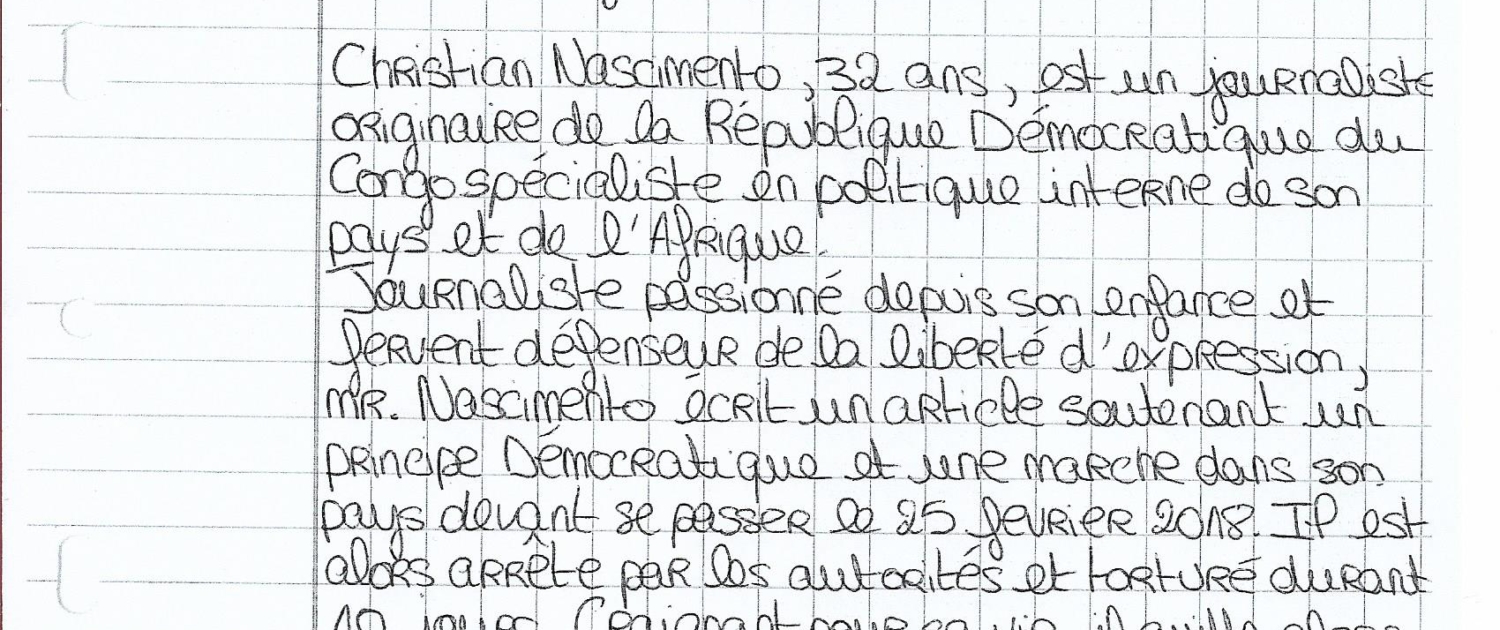 Christian Nascimento, 32 ans, est un journaliste
originaire de la République Démocratique du
Congo spécialiste en politique interne de son
pays et de l'Afrique.
Journaliste passionné depuis son enfance et
fervent défenseur de la liberté d'expression,
mR. Nascimento écrit un article soutenant un
principe Démocratique et une marche dans son
pays devant se passer le 25 fevrier 2018. Il est
alors arrête par les autorités et torturé durant
10 jours. Craignant pour sa vie, il